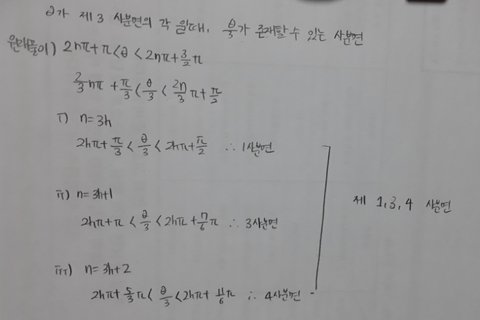 θ가 제 3 사분면의 각 일때, θ/3가 존재할 수 있는 사분면
원래풀이) 2nπ+π<θ<2nπ+3/2π
2/3nπ+π/3<θ/3<2n/3π+π/2
i) n=3h
2hπ+π/3<θ/3<2hπ+π/2 ∴ 1사분면
ii) n=3h+1
2hπ+π<θ/3<2hπ+7/6π ∴ 3사분면
제 1,3,4 사분면
iii) n=3h+2
2hπ+5/3π<θ/3<2hπ+11/6π ∴ 4사분면